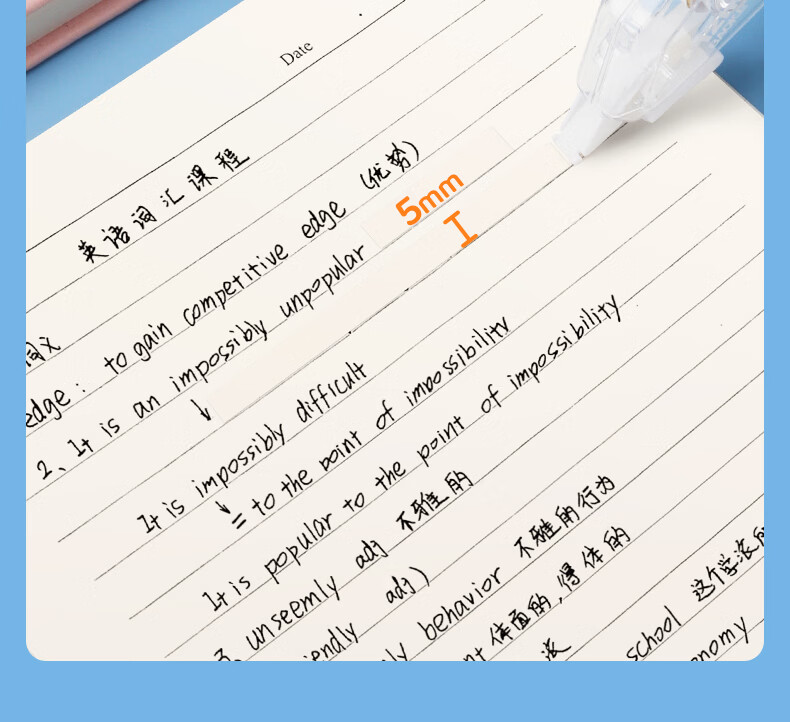 Date
英语词汇课程
词义
edge: to gain competitive edge (优势)
5mm
2、It is an impossibly unpopular
It is impossibly difficult
= to the point of impossibility
It is popular to the point of impossibility
3、unseemly adj 不雅的
endly adj)
ly behavior 不雅的行为
体面的,得体的
school 这个学派的
nomy